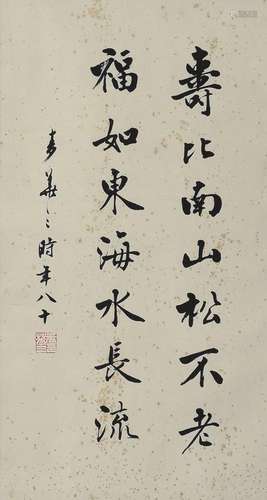 壽比南山松不老
福如東海水長流
時年八十